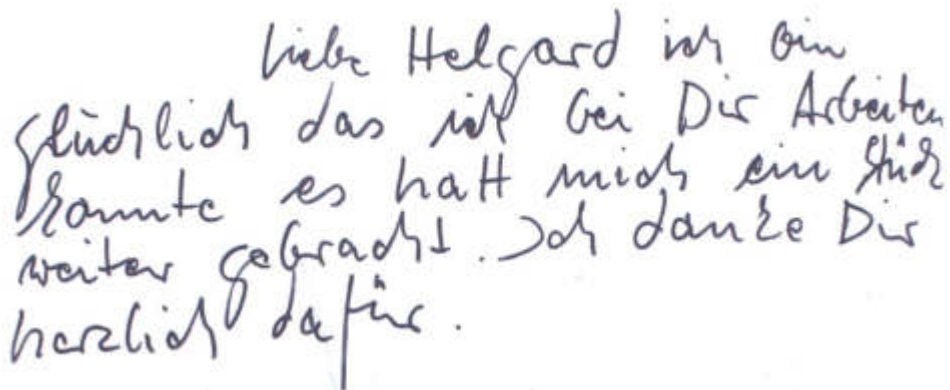 liebe Helgard ich bin
glücklich das ich bei Dir Arbeiten
konnte es hatt mich ein Stück
weiter gebracht. Ich danke Dir
herzlich dafür.